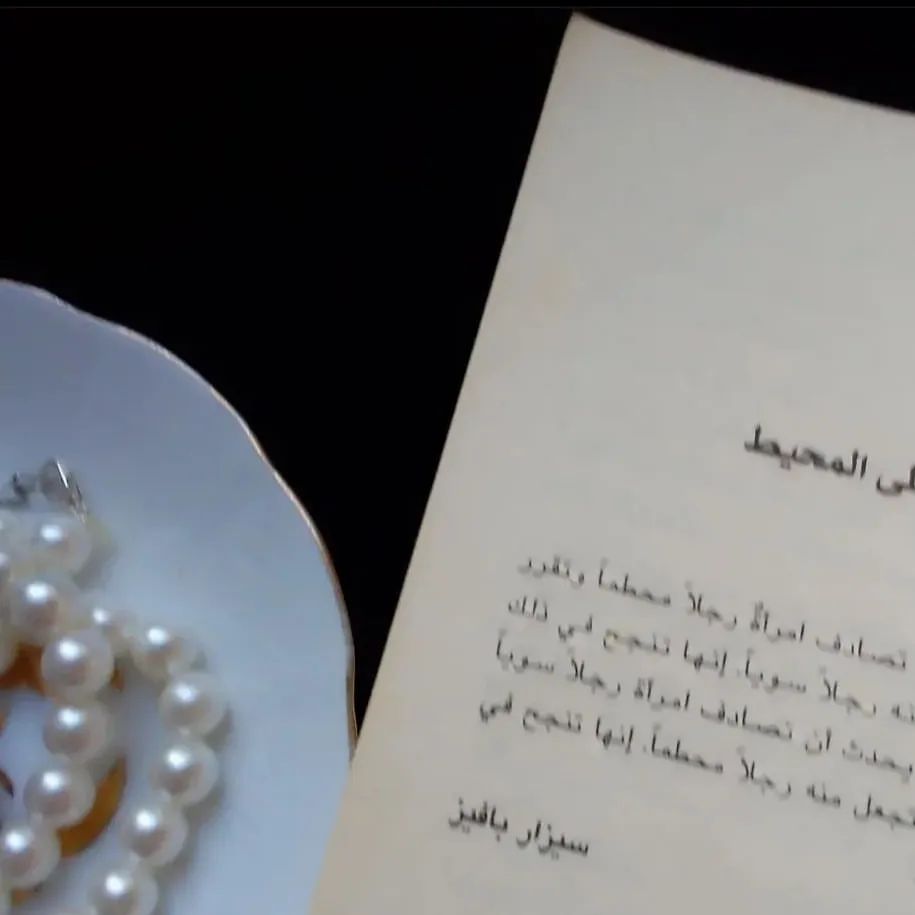 المحيط
تصادف امرأةٌ رجلاً محطماً وتقرر
رجلاً سوياً. إنها تنجح في ذلك
يحدث أن تصادف امرأة رجلاً سوياً
تجعل منه رجلاً محطماً. إنها تنجح في
سيزار بافيز